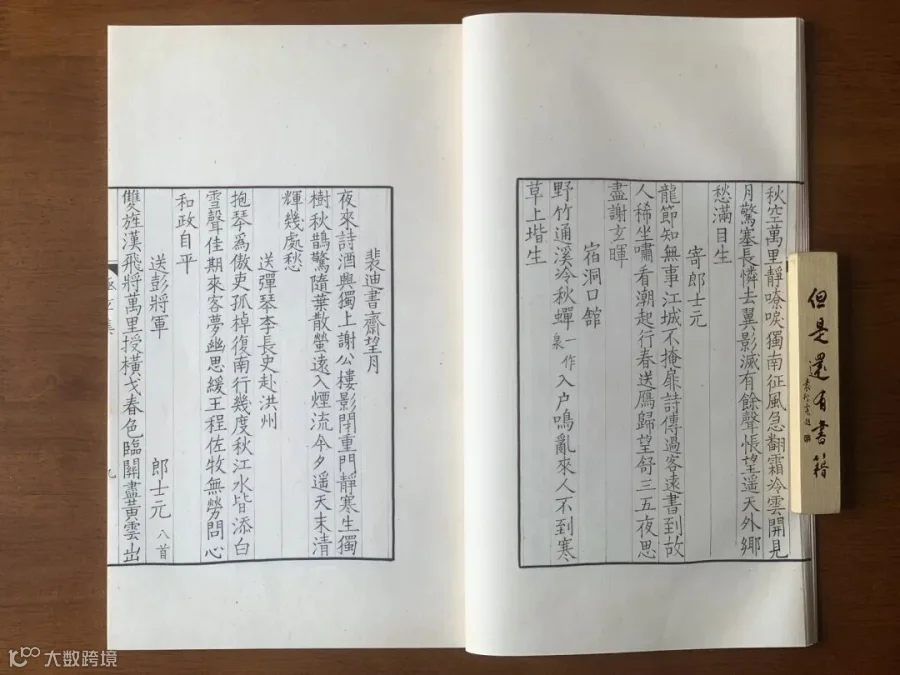 秋空萬里靜嘹唳獨南征風急翻霜冷雲開見
月驚塞長憐去翼影滅有餘聲悵望遥天外鄉
愁滿目生
寄郎士元
龍節知無事江城不掩扉詩傳過客遠書到故
人稀坐嘯看潮起行春送鴈歸望舒三五夜思
盡謝玄暉
宿洞口館
野竹通溪冷秋蟬一作入户鳴亂來人不到寒
草上堦生
裴迪書齋望月
夜來詩酒興獨上謝公樓影閉重門靜寒生獨
樹秋鵲驚隨葉散螢遠入煙流今夕遥天末清
輝幾處愁
送彈琴李長史赴洪州
抱琴爲傲吏孤棹復南行幾度秋江水皆添白
雪聲佳期來客夢幽思緩王程佐牧無勞問心
和政自平
郎士元 八首
送彭將軍
雙旌漢飛將萬里授橫戈春色臨關盡黄雲出
九
但是還有書籍
大数跨境